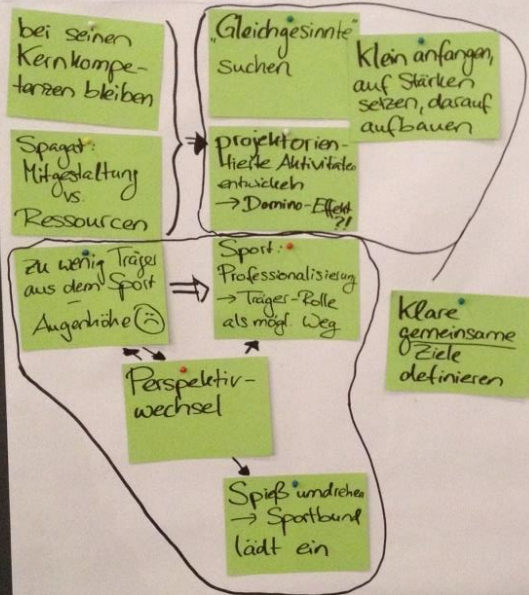 bei seinen
Kernkompe-
tenzen bleiben
Spagat:
Mitgestaltung
vs.
Ressourcen
"Gleichgesinnte"
suchen
Klein anfangen,
auf Stärken
setzen, darauf
aufbauen
projektorien-
tierte Aktivitäten
entwickeln
→ Domino-Effekt
?!
zu wenig Träger
aus dem Sport
–
Augenhöhe ☹
Sport:
Professionalisierung
→ Träger-Rolle
als mögl. Weg
Klare
gemeinsame
Ziele
definieren
Perspektiv-
wechsel
Spieß umdrehen
→ Sportbund
lädt ein